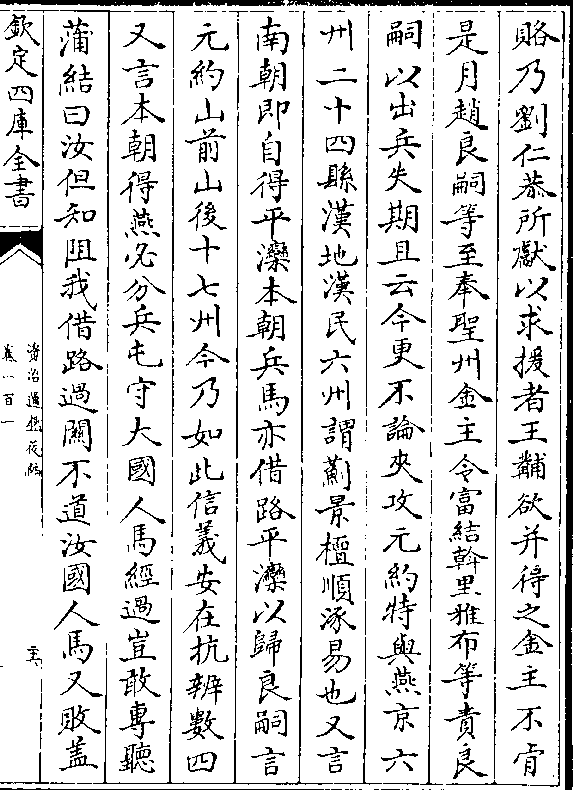 賂乃劉仁恭所獻以求援者王黼欲并得之金主不肯
是月趙良嗣等至奉聖州金主令富結斡里雅布等責良
嗣以出兵失期且云今更不論夾攻元約特與燕京六
州二十四縣漢地漢民六州謂薊景檀順涿易也又言
南朝即自得平灤本朝兵馬亦借路平灤以歸良嗣言
元約山前山後十七州今乃如此信義安在抗辨數四
又言本朝得燕必分兵屯守大國人馬經過豈敢專聽
蒲結曰汝但知阻我借路過關不道汝國人馬又敗盖
欽定四庫全書
資治通鑑後編
卷一百一